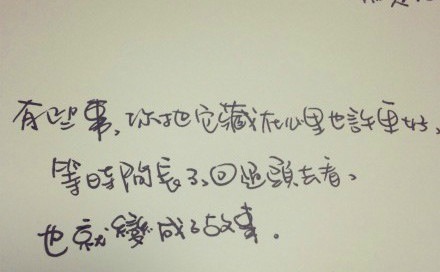 有些事,你把它藏在心里也許更好、
等時間長了、回過頭去看、
也就變成了故事.